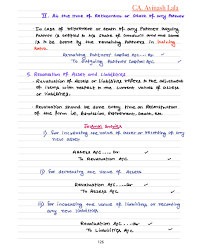 CA. Avinash Lala
II. At the time of Retirement or Death of any Partner
In case of retirement or death of any Partner, outgoing
Partner is entitled to his share of Goodwill and the same
is to be borne by the remaining Partners in Gaining
Ratio.
Remaining Partners' Capital A/c... Dr.
To Outgoing Partners' Capital A/c
5. Revaluation of Assets and Liabilities
- Revaluation of assets or liabilities reflects the adjustment
of items with respect to the current values of assets
or liabilities.
- Revaluation should be done every time on Reconstitution
of the firm i.e. Admission, Retirement, Death, etc.
Journal Entries
i) For increasing the value of Assets or recording of any
new assets
Assets A/c..... Dr.
To Revaluation A/c
ii) For decreasing the value of Assets
Revaluation A/c..... Dr.
To Assets A/c
iii) For increasing the value of liabilities or recording
any new liabilities
Revaluation A/c..... Dr.
To Liabilities A/c